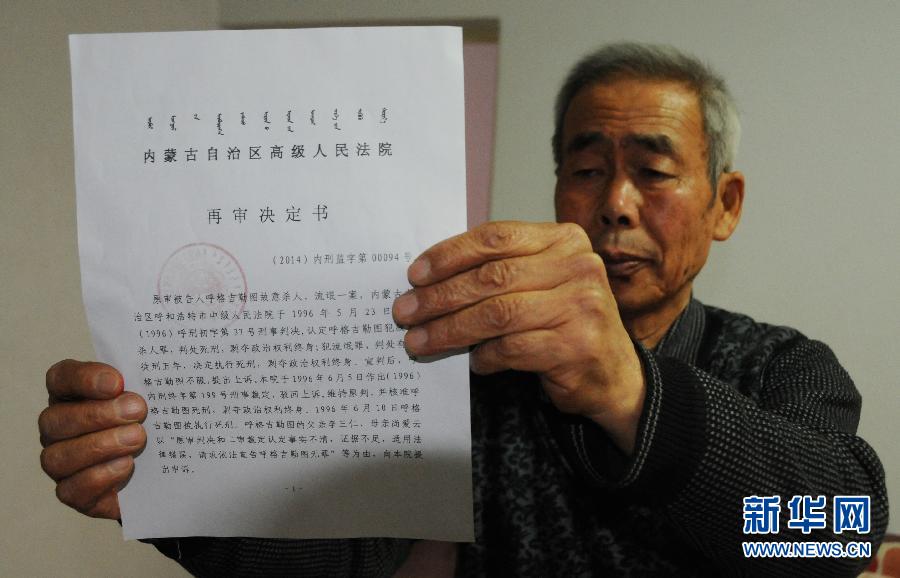 内蒙古自治区高级人民法院
再审决定书
(2014)内刑监字第00094号
原审被告人呼格吉勒图故意杀人、流氓一案，内蒙古
治区呼和浩特市中级人民法院于1996年5月23日
(1996)呼刑初字第37号刑事判决,认定呼格吉勒图犯
杀人罪，判处死刑，剥夺政治权利终身;犯流氓罪，判处有
徒刑五年，决定执行死刑，剥夺政治权利终身。宣判后，
格吉勒图不服,提出上诉。本院于1996年6月5日作出(1996)
内刑终字第199号刑事裁定，驳回上诉,维持原判，并核准呼
格吉勒图死刑，剥夺政治权利终身。1996年6月10日呼格
吉勒图被执行死刑。呼格吉勒图的父亲李三仁、母亲尚爱云
以“原审判决和二审裁定认定事实不清，证据不足，适用法
律错误，请求依法宣告呼格吉勒图无罪”等为由，向本院提
出申诉。
-1-
新华网
WWW.NEWS.CN